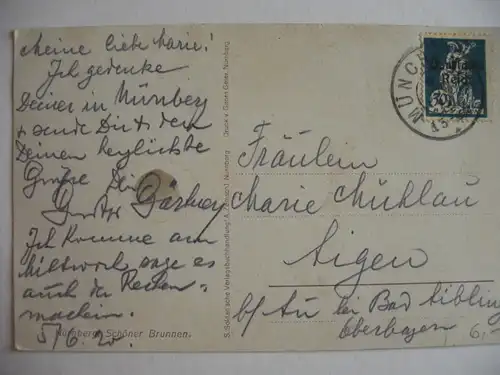 Meine liebe Marie!
Ich gedenke
Deiner in Nürnberg
+ sende Dir + den
Deinen herzlichste
Grüße Dein
Gustav
Ich komme am
Mittwoch, sage es
auch der
5/6. 20.
Nürnberg. Schöner Brunnen.
Druck v. Gebr. Nürnberg
S. Soldan'sche Verlagsbuchhandlung A. Nürnberg
MÜNCH
Fräulein
Marie Mühlau
Aigen
b/ Au bei Bad Aibling
Oberbayern